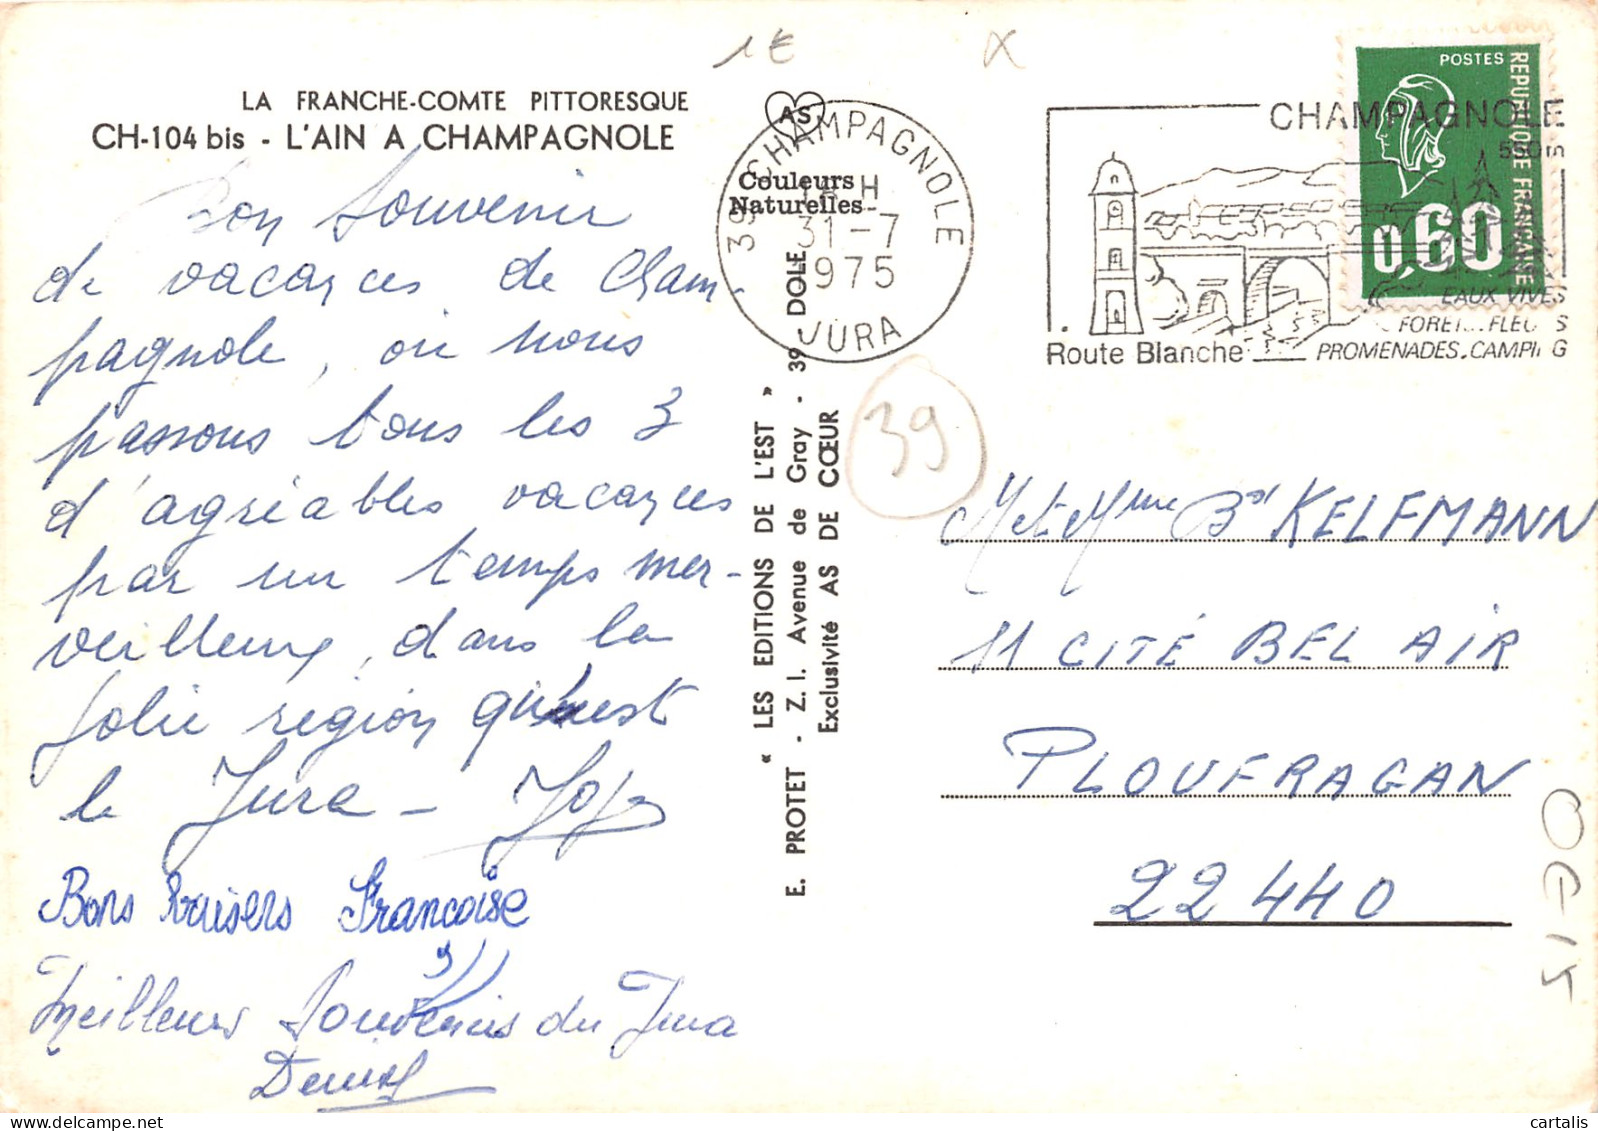 1€
LA FRANCHE-COMTE PITTORESQUE
CH-104 bis - L'AIN A CHAMPAGNOLE
Bon Souvenir
de vacances de Cham-
pagnole, où nous
passons tous les 3
d'agréables vacances
par un temps mer-
veilleux, dans la
jolie région qu'est
le Jura -
Bons baisers Françoise
Meilleurs Souvenirs du Jura
AS
Couleurs
Naturelles
39 CHAMPAGNOLE
18 H
31-7
1975
JURA
« LES EDITIONS DE L'EST »
E. PROTET - Z. I. Avenue de Gray - 39 DOLE
Exclusivité AS DE CŒUR
39
CHAMPAGNOLE
550 m
Route Blanche
EAUX VIVES
FORET. FLEURS
PROMENADES. CAMPING
POSTES
REPUBLIQUE FRANCAISE
0,60
M et Mme KELFMANN
11 CITÉ BEL AIR
PLOUFRAGAN
22440
cartalis